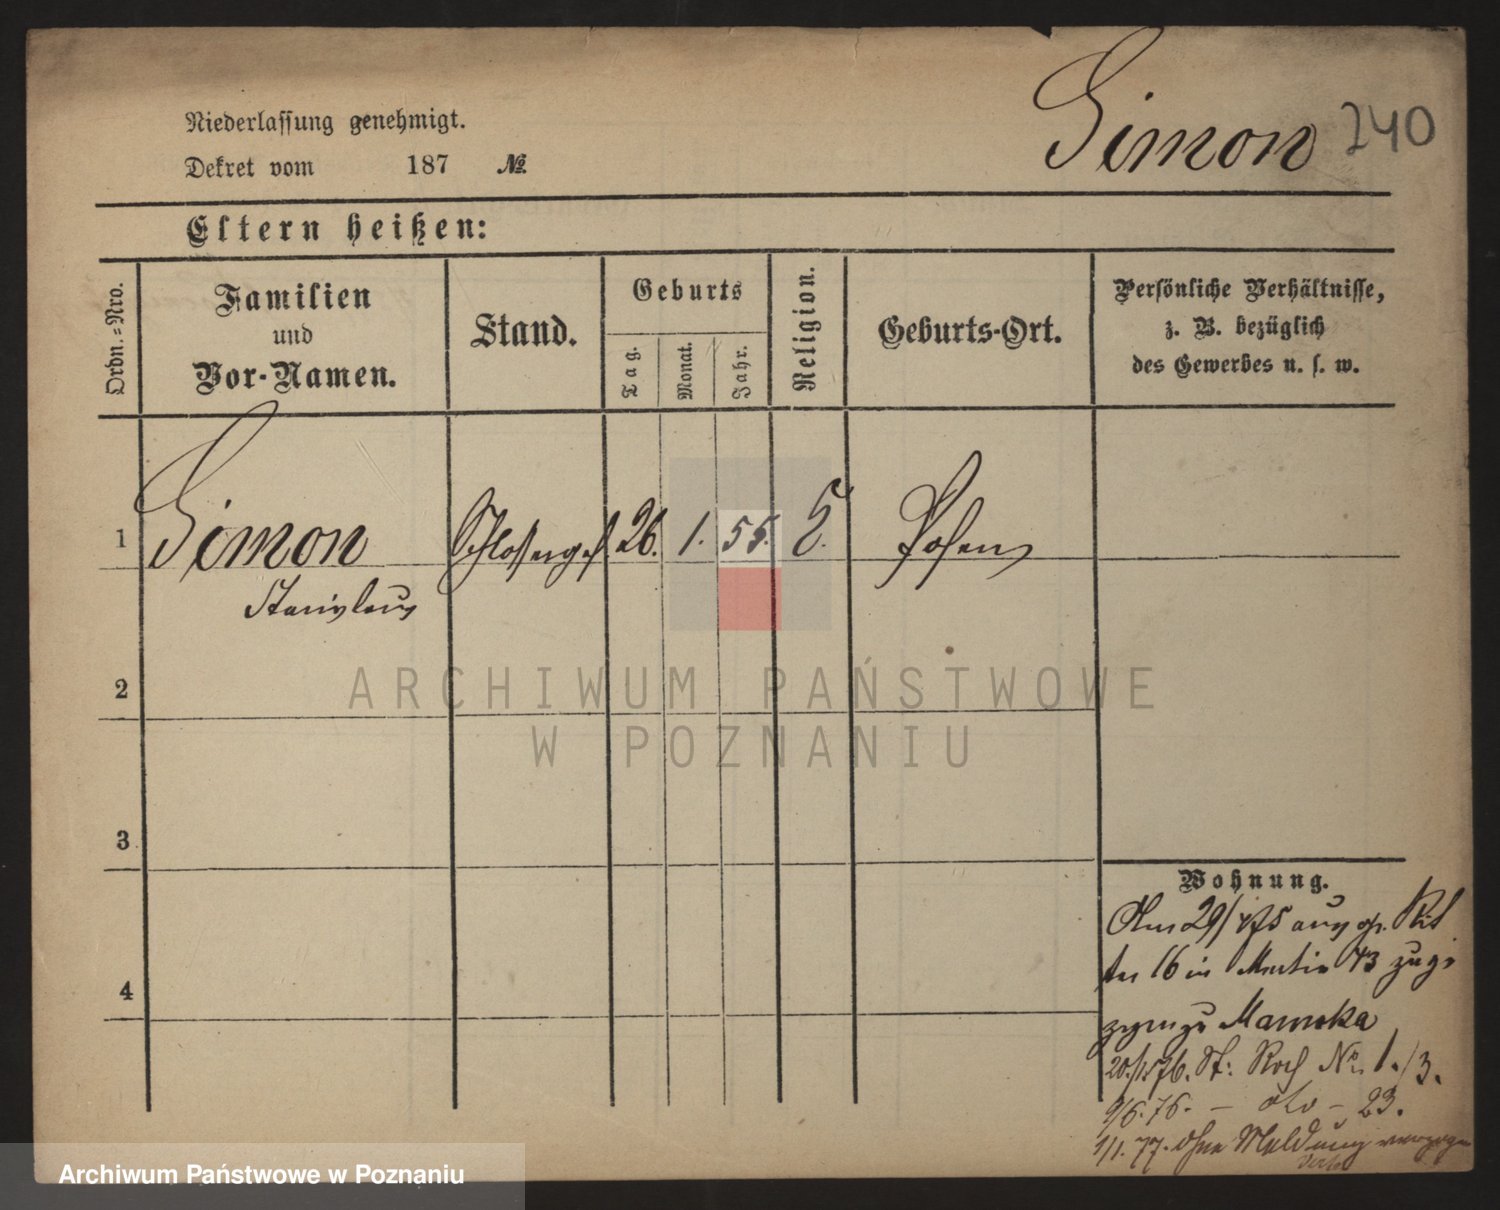 Simon 240
Niederlassung genehmigt.
Dekret vom 187 №
Eltern heißen:
Ordn.-Nro.
Familien
und
Vor-Namen.
Stand.
Geburts
Tag.
Monat.
Jahr.
Religion.
Geburts-Ort.
Persönliche Verhältnisse,
z. B. bezüglich
des Gewerbes u. s. w.
1 Simon Schlosserges 26. 1. 55. Posen
Stanislaus
2
3
4
Wohnung.
29/ 75 aus gr. Rit
ter 16 in Martin 73
zu Mameka
76. St: Roch No. 1./3.
9/6. 76. - dto - 23.
1/1. 77. ohne Meldung verzogen
ARCHIWUM PAŃSTWOWE
W POZNANIU
Archiwum Państwowe w Poznaniu